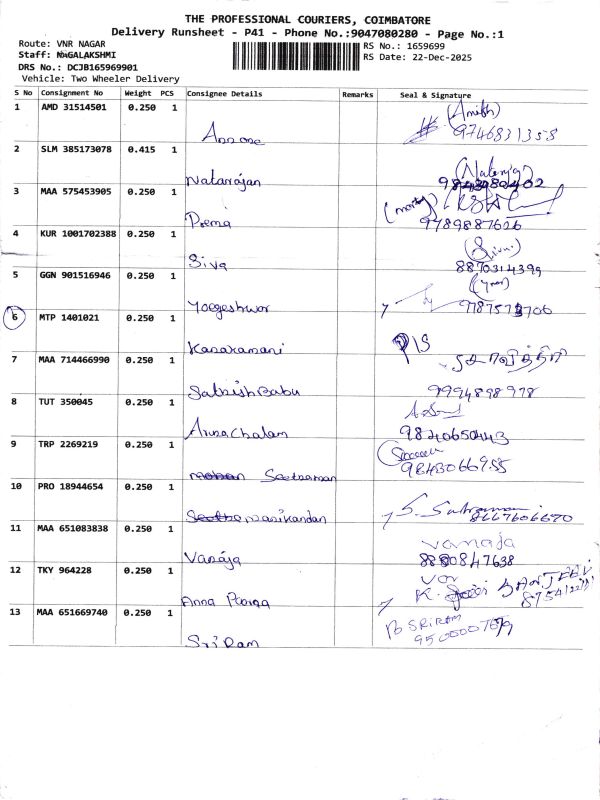 THE PROFESSIONAL COURIERS, COIMBATORE
Delivery Runsheet - P41 - Phone No.:9047080280 - Page No.:1
Route: VNR NAGAR
Staff: NAGALAKSHMI
DRS No.: DCJB165969901
Vehicle: Two Wheeler Delivery
RS No.: 1659699
RS Date: 22-Dec-2025
S No Consignment No Weight PCS Consignee Details Remarks Seal & Signature
1 AMD 31514501 0.250 1
9746831358
2 SLM 385173078 0.415 1
Natarajan
3 MAA 575453905 0.250 1
Prema 9789887626
4 KUR 1001702388 0.250 1
Siva 8870314399
5 GGN 901516946 0.250 1
Yoegeshwor
6 MTP 1401021 0.250 1
Kanakamani
7 MAA 714466990 0.250 1
Sathish Babu 9994898978
8 TUT 350045 0.250 1
Arunachalam 9840650443
9 TRP 2269219 0.250 1
Seetraman 9843066955
10 PRO 18944654 0.250 1
Manikandan 8667606670
11 MAA 651083838 0.250 1 vanaja
Vanaja 8880847638
12 TKY 964228 0.250 1
Anna Poorna
13 MAA 651669740 0.250 1 SRIRAM
SriRam